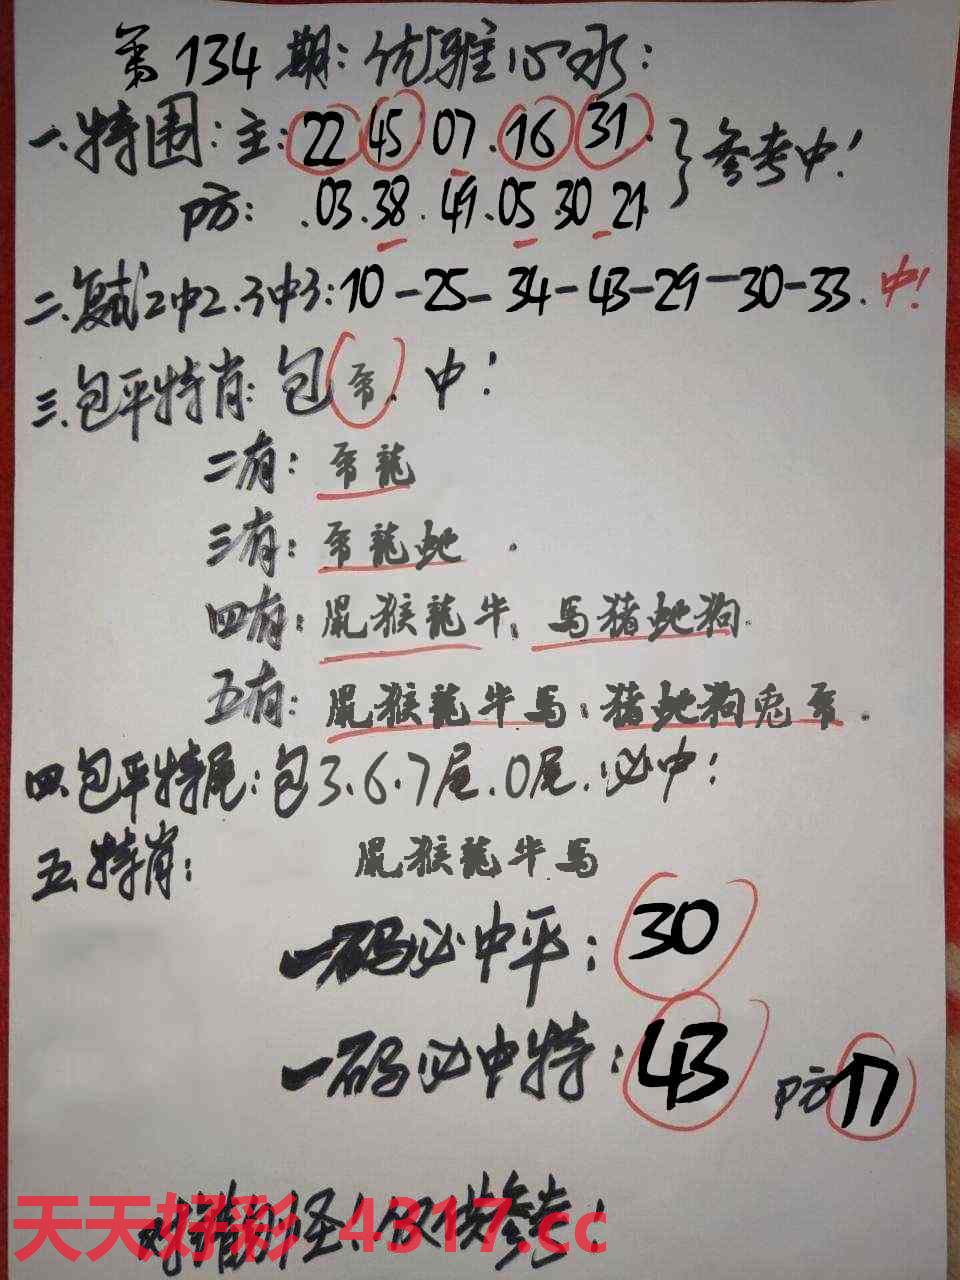 第134期:优雅心水:
一.特围:主:22.45.07.16.31.}参考中!
防:.03.38.49.05.30.21.
二.复式2中2.3中3:10-25-34-43-29-30-33.中!
三.包平特肖:包.中!
二有:龍
三有:龍蛇.
四有:鼠猴龍牛.馬猪蛇狗.
五有:鼠猴龍牛馬.猪蛇狗兎.
四.包平特尾:包3.6.7尾.0尾.必中!
五.特肖:鼠猴龍牛馬
一码必中平:30
一码必中特:43 防17
对错勿怪!仅供参考!
天天好彩 4317.cc